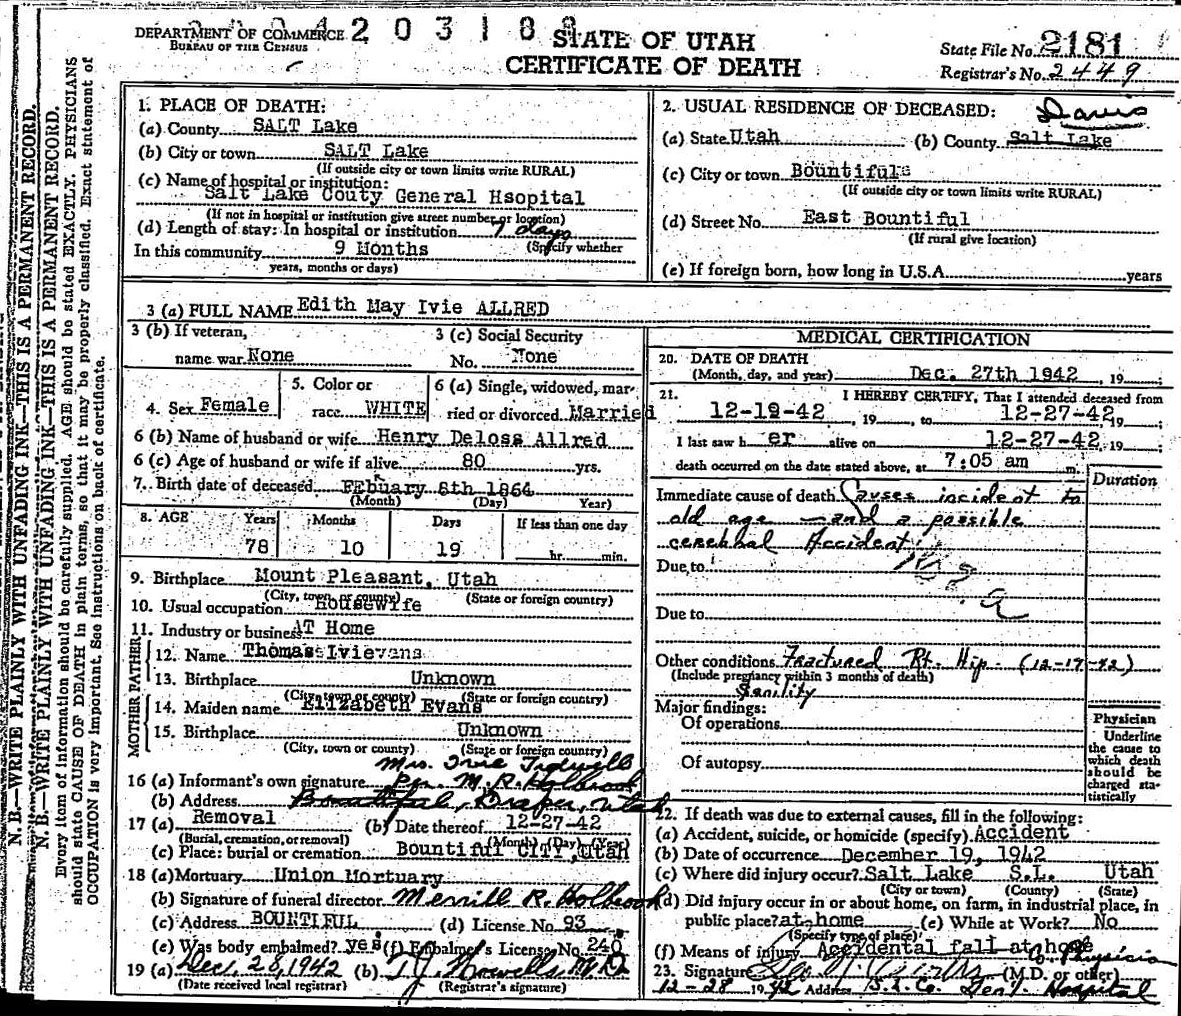 DEPARTMENT OF COMMERCE
BUREAU OF THE CENSUS
STATE OF UTAH
CERTIFICATE OF DEATH
State File No. 2181
Registrar's No. 2449
N. B.—WRITE PLAINLY WITH UNFADING INK—THIS IS A PERMANENT RECORD.
N. B.—WRITE PLAINLY WITH UNFADING INK—THIS IS A PERMANENT RECORD.
Every item of information should be carefully supplied. AGE should be stated EXACTLY. PHYSICIANS
should state CAUSE OF DEATH in plain terms, so that it may be properly classified. Exact statement of
OCCUPATION is very important. See instructions on back of certificate.
1. PLACE OF DEATH:
(a) County SALT Lake
(b) City or town SALT Lake
(If outside city or town limits write RURAL)
(c) Name of hospital or institution:
Salt Lake Couty General Hsopital
(If not in hospital or institution give street number or location)
(d) Length of stay: In hospital or institution days
(Specify whether
In this community 9 Months
years, months or days)
2. USUAL RESIDENCE OF DECEASED: Davis
(a) State Utah (b) County Salt Lake
(c) City or town Bountiful
(If outside city or town limits write RURAL)
(d) Street No. East Bountiful
(If rural give location)
(e) If foreign born, how long in U.S.A. years
3 (a) FULL NAME Edith May Ivie ALLRED
3 (b) If veteran,
name war None
3 (c) Social Security
No. None
4. Sex Female
5. Color or
race WHITE
6 (a) Single, widowed, mar-
ried or divorced Married
6 (b) Name of husband or wife Henry Deloss Allred
6 (c) Age of husband or wife if alive 80 yrs.
7. Birth date of deceased FEbuary 8th 1864
(Month) (Day) Year)
8. AGE Years Months Days If less than one day
78 10 19 hr. min.
9. Birthplace Mount Pleasant, Utah
(City, town, or county) (State or foreign country)
10. Usual occupation Housewife
11. Industry or business AT Home
FATHER
12. Name Thomas Ivievans
13. Birthplace Unknown
(City, town or county) (State or foreign country)
MOTHER
14. Maiden name Elizabeth Evans
15. Birthplace Unknown
(City, town or county) (State or foreign country)
Mrs. Ivie Tidwell
16 (a) Informant's own signature Per. M. R. Holbrook
(b) Address Bountiful, Draper, Utah
17 (a) Removal (b) Date thereof 12-27-42
(Burial, cremation, or removal) (Month) (Day) (Year)
(c) Place: burial or cremation Bountiful CITY, Utah
18 (a) Mortuary Union Mortuary
(b) Signature of funeral director Merrill R. Holbrook
(c) Address BOUNTIFUL (d) License No. 93
(e) Was body embalmed? yes (f) Embalmer's License No. 240
19 (a) Dec. 28, 1942 (b) T. J. Howells, M.D.
(Date received local registrar) (Registrar's signature)
MEDICAL CERTIFICATION
20. DATE OF DEATH
(Month, day, and year) Dec. 27th 1942, 19
21. I HEREBY CERTIFY, That I attended deceased from
12-19-42, 19, to 12-27-42, 19;
I last saw her alive on 12-27-42, 19;
death occurred on the date stated above, at 7:05 am m.
Duration
Immediate cause of death Causes incident to
old age — and a possible
cerebral Accident
Due to
Due to
Other conditions Fractured Rt. Hip. (12-17-42)
(Include pregnancy within 3 months of death)
Senility
Major findings:
Of operations
Of autopsy
Physician
Underline
the cause to
which death
should be
charged sta-
tistically
22. If death was due to external causes, fill in the following:
(a) Accident, suicide, or homicide (specify) Accident
(b) Date of occurrence December 19, 1942
(c) Where did injury occur? Salt Lake S.L. Utah
(City or town) (County) (State)
(d) Did injury occur in or about home, on farm, in industrial place, in
public place? at home (e) While at Work? No
(Specify type of place)
(f) Means of injury Accidental fall at home
Co. Physician
23. Signature (M.D. or other)
12-28 1942 Address S.L. Co. Gen'l. Hospital